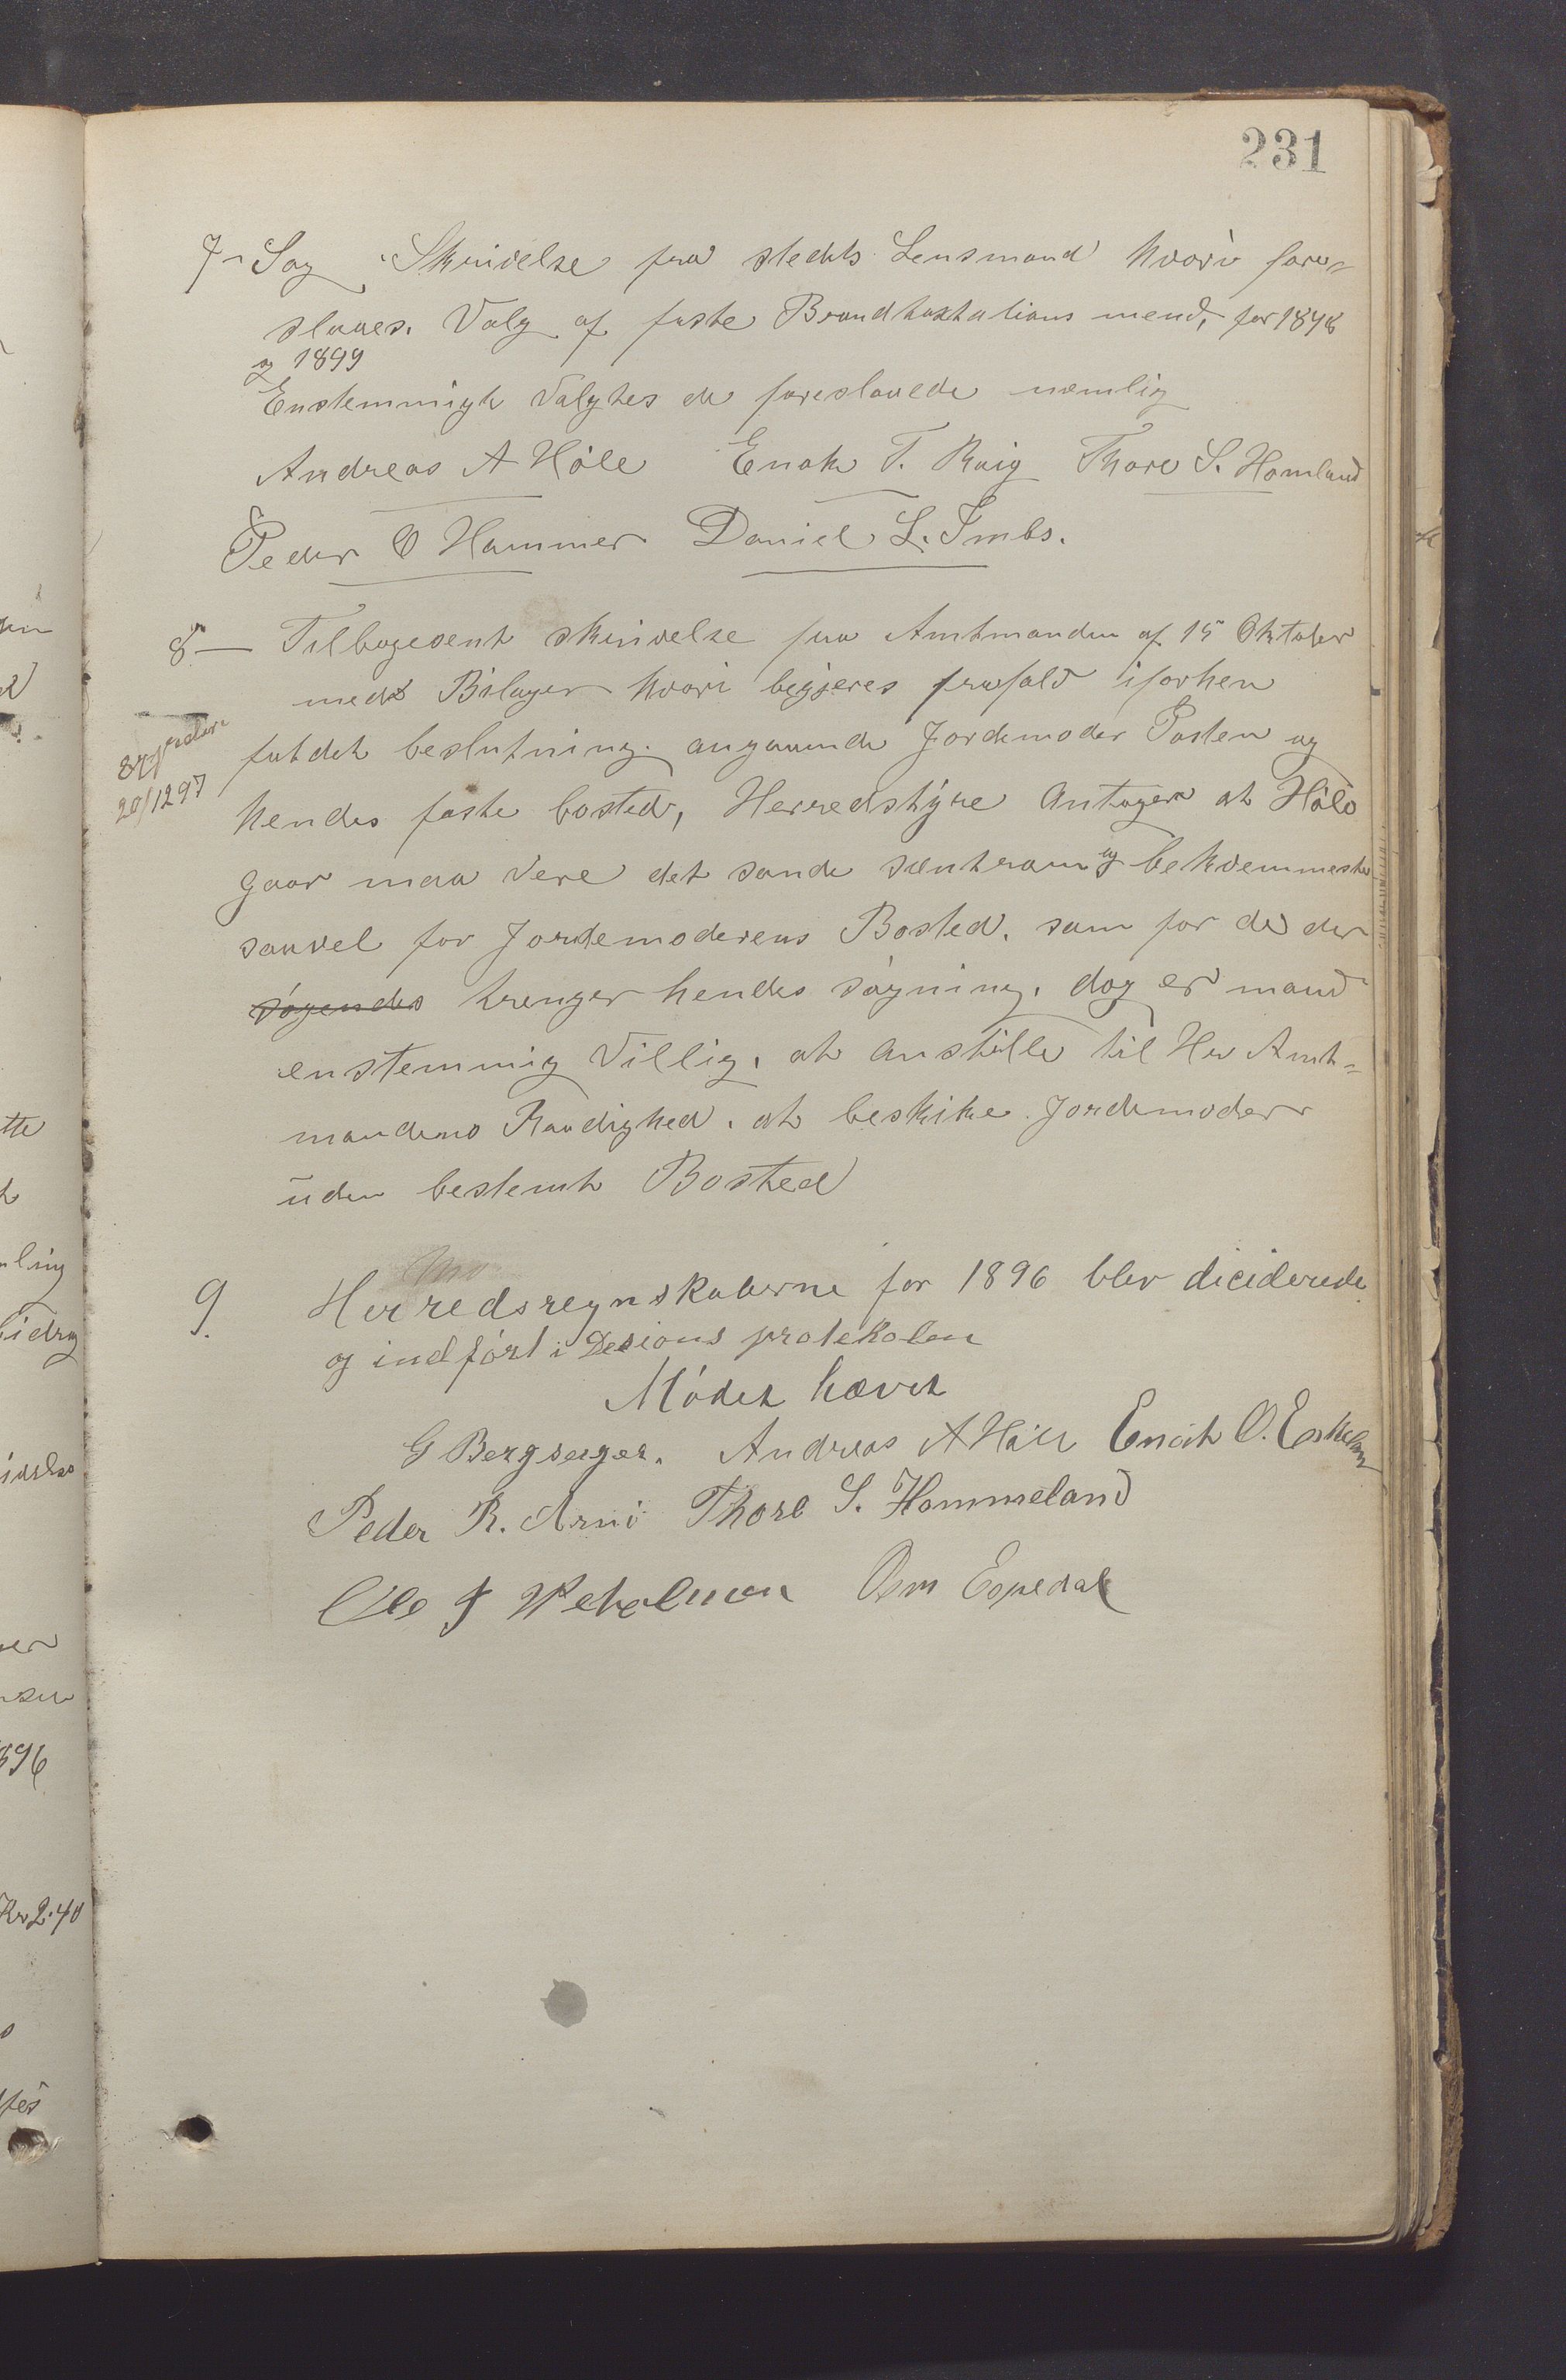 231
7 - Sag Skrivelse fra stedets Lensmand hvori fore-
slaaes. Valg af faste Brandtakstations mend, for 1898
og 1899
Enstemmigt Valgtes de foreslaaede nemlig
Andreas A Høle Enok T. Roig Thore S. Homland
Peder O Hammer Daniel L. Imbs.
8 — Tilbagesent skrivelse fra Amtmanden af 15 Oktober
med Bilager hvori begjeres frafald iforhen
fatdet beslutning. angaaende Jordemoder Posten og
Expedere
20/12 97
hendes faste bosted, Herredstyre Antager at Høle
gaar maa vere det sande sentrum og bekvemmeste
saavel for Jordemoderens Bosted, som for de der
søgendes trenger hendes søgning, dog er mand
enstemmig Villig, at anstille til Hr Amt-
mandens Raadighed. at beskike Jordemoder
uden bestemt Bosted
9. Herredsregnskaberne for 1896 blev diciderede
og indført i Desions protekolen
Mødet hævet
G Bergsager. Andreas A Høle Enok O. Eskeland
Peder R. Arnø Thore S. Hommeland
Ole J Osm Espedal
ling
bidrag
896
Kr 2.40